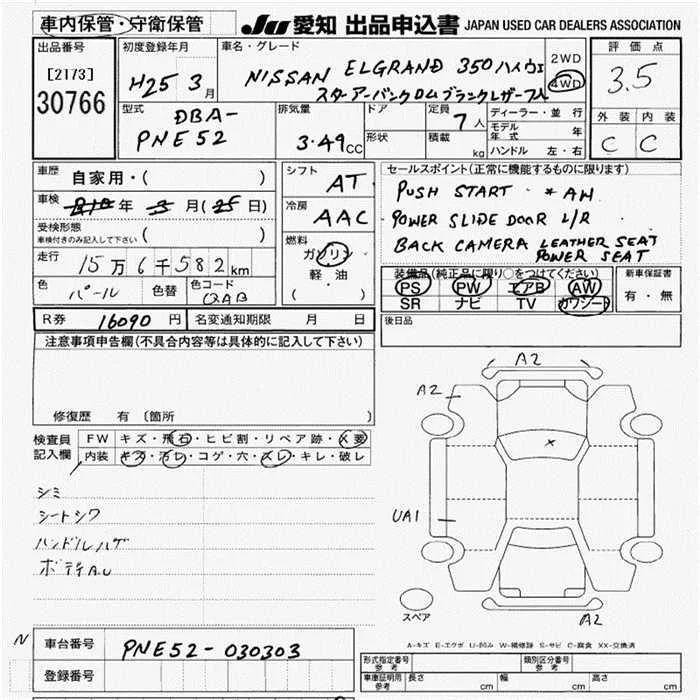 車内保管・守衛保管
JU 愛知 出品申込書 JAPAN USED CAR DEALERS ASSOCIATION
出品番号
[2173]
30766
初度登録年月
H25 3月
車名・グレード
NISSAN ELGRAND 350 ハイウェ
スターアーバンクロム ブラックレザー
2WD
4WD
評価点
3.5
外装 内装
C C
型式
DBA-
PNE52
排気量
3.49cc
ドア
形状
定員
7人
積載
kg
ディーラー・並行
モデル年式 年
ハンドル 左・右
車歴
自家用・( )
車検
年 3月(25日)
受検形態
車検付きのみ記入して下さい ( )
走行
15万6千582km
色
パール
色替
色コード
QAB
シフト
AT
冷房
AAC
燃料
ガソリン
軽・油
( )
セールスポイント(正常に機能するものに限ります)
PUSH START ・ *AH
POWER SLIDE DOOR L/R
BACK CAMERA LEATHER SEAT
POWER SEAT
装備品(純正品に限り○をつけてください)
PS PW エアB AW
SR ナビ TV カワシート
新車保証書
有・無
R券 16090円 名変通知期限 月 日
後日品
注意事項申告欄(不具合内容等は具体的に記入して下さい)
修復歴 有 〔箇所
検査員
記入欄
FW キズ・飛石・ヒビ割・リペア跡・X要
内装 キズ・汚レ・コゲ・穴・スレ・キレ・破レ
シミ
シートシワ
ハンドルハゲ
ボディA.U
A2
A2
×
UA1
A2
スペア
A-キズ E-エクボ U-凹み W-補修跡 S-サビ C-腐食 XX-交換済
N
車台番号 PNE52-030303
登録番号
形式指定番号 参考
類別区分番号 参考
車庫証明用 参考 長さ cm 幅 cm 高さ cm